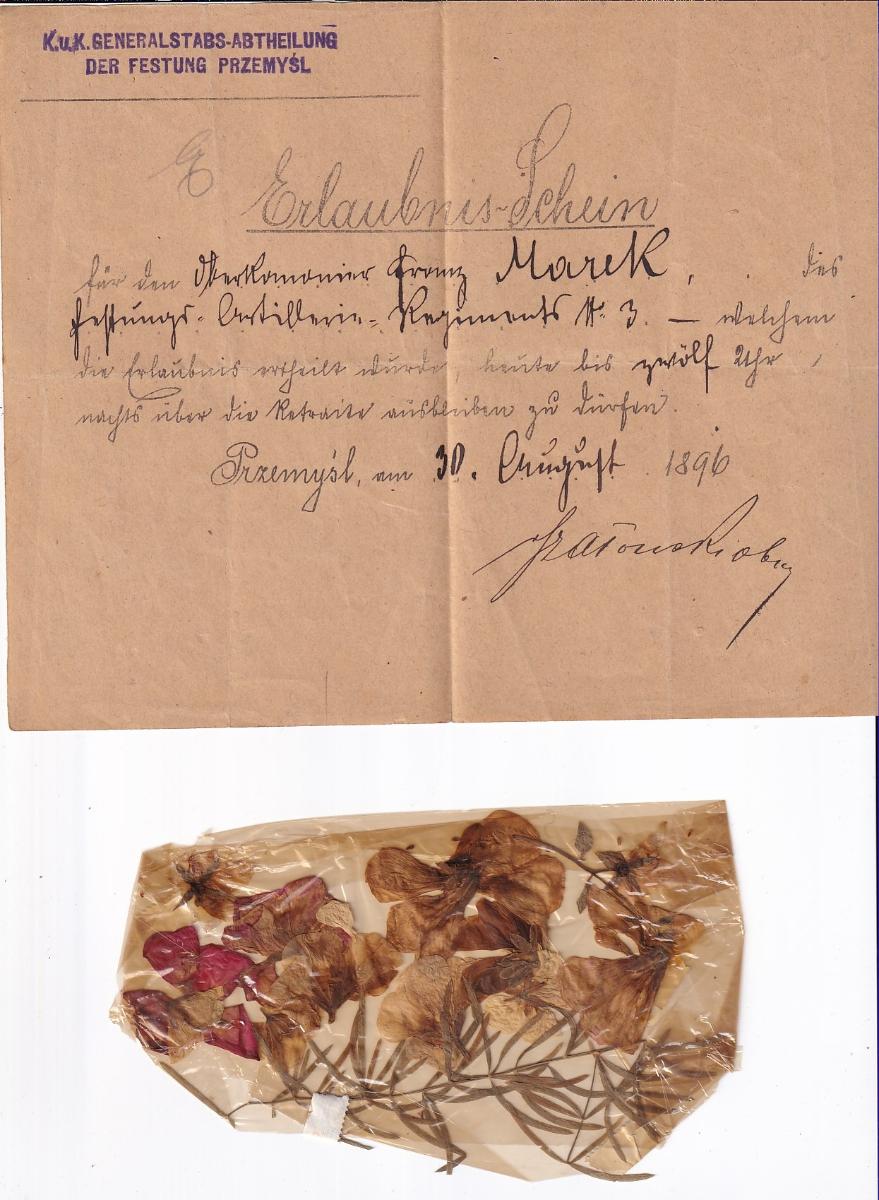 K.u.K. GENERALSTABS-ABTHEILUNG
DER FESTUNG PRZEMYŚL
Erlaubnis-Schein
für den Oberkanonier Franz Marek, des
Festungs-Artillerie-Regiments Nr. 3. — welchem
die Erlaubnis ertheilt wurde, heute bis zwölf Uhr,
nachts über die Retraite ausbleiben zu dürfen.
Przemyśl, am 30. August 1896